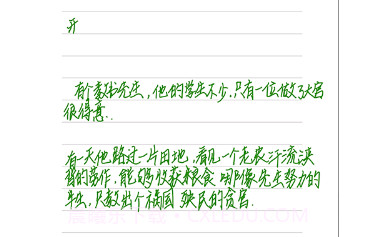 开
有个教书先生，他的学生不少.只有一位做了大官
很得意..
有一天他路过一片田地，看见一个老农汗流浃
背的劳作.能够收获粮食 哪像先生努力的
半生，只教出个祸国 殃民的贪官.